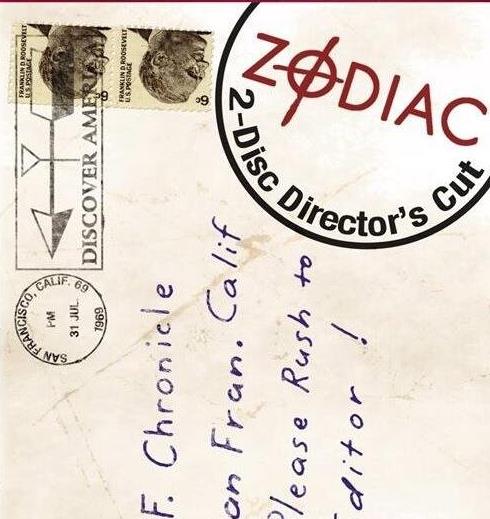 FRANKLIN D. ROOSEVELT
U.S. POSTAGE
6
FRANKLIN D. ROOSEVELT
U.S. POSTAGE
6
DISCOVER AMERICA
SAN FRANCISCO, CALIF. 69
PM
31 JUL
1969
ZODIAC
2-Disc Director's Cut
F. Chronicle
an Fran. Calif
lease Rush to
ditor !